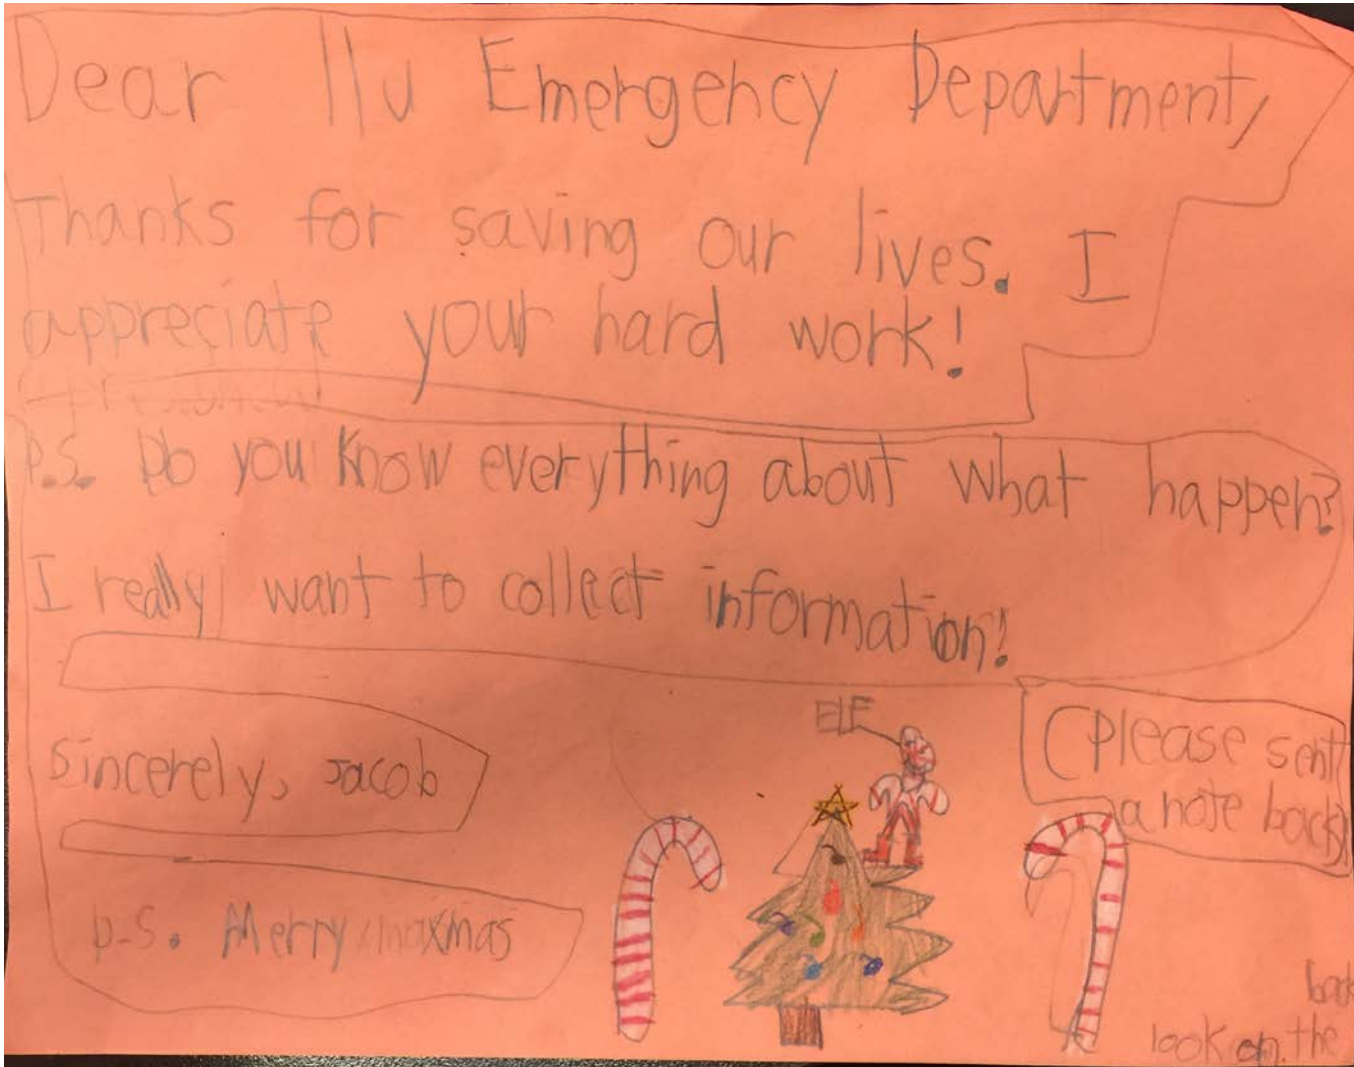 Dear llu Emergency Department,
Thanks for saving our lives. I
appreciate your hard work!
P.S. Do you know everything about what happen?
I really want to collect information!
Sincerely, Jacob
P.S. Merry xmas
ELF
(Please sent
a note back)
look on the
back